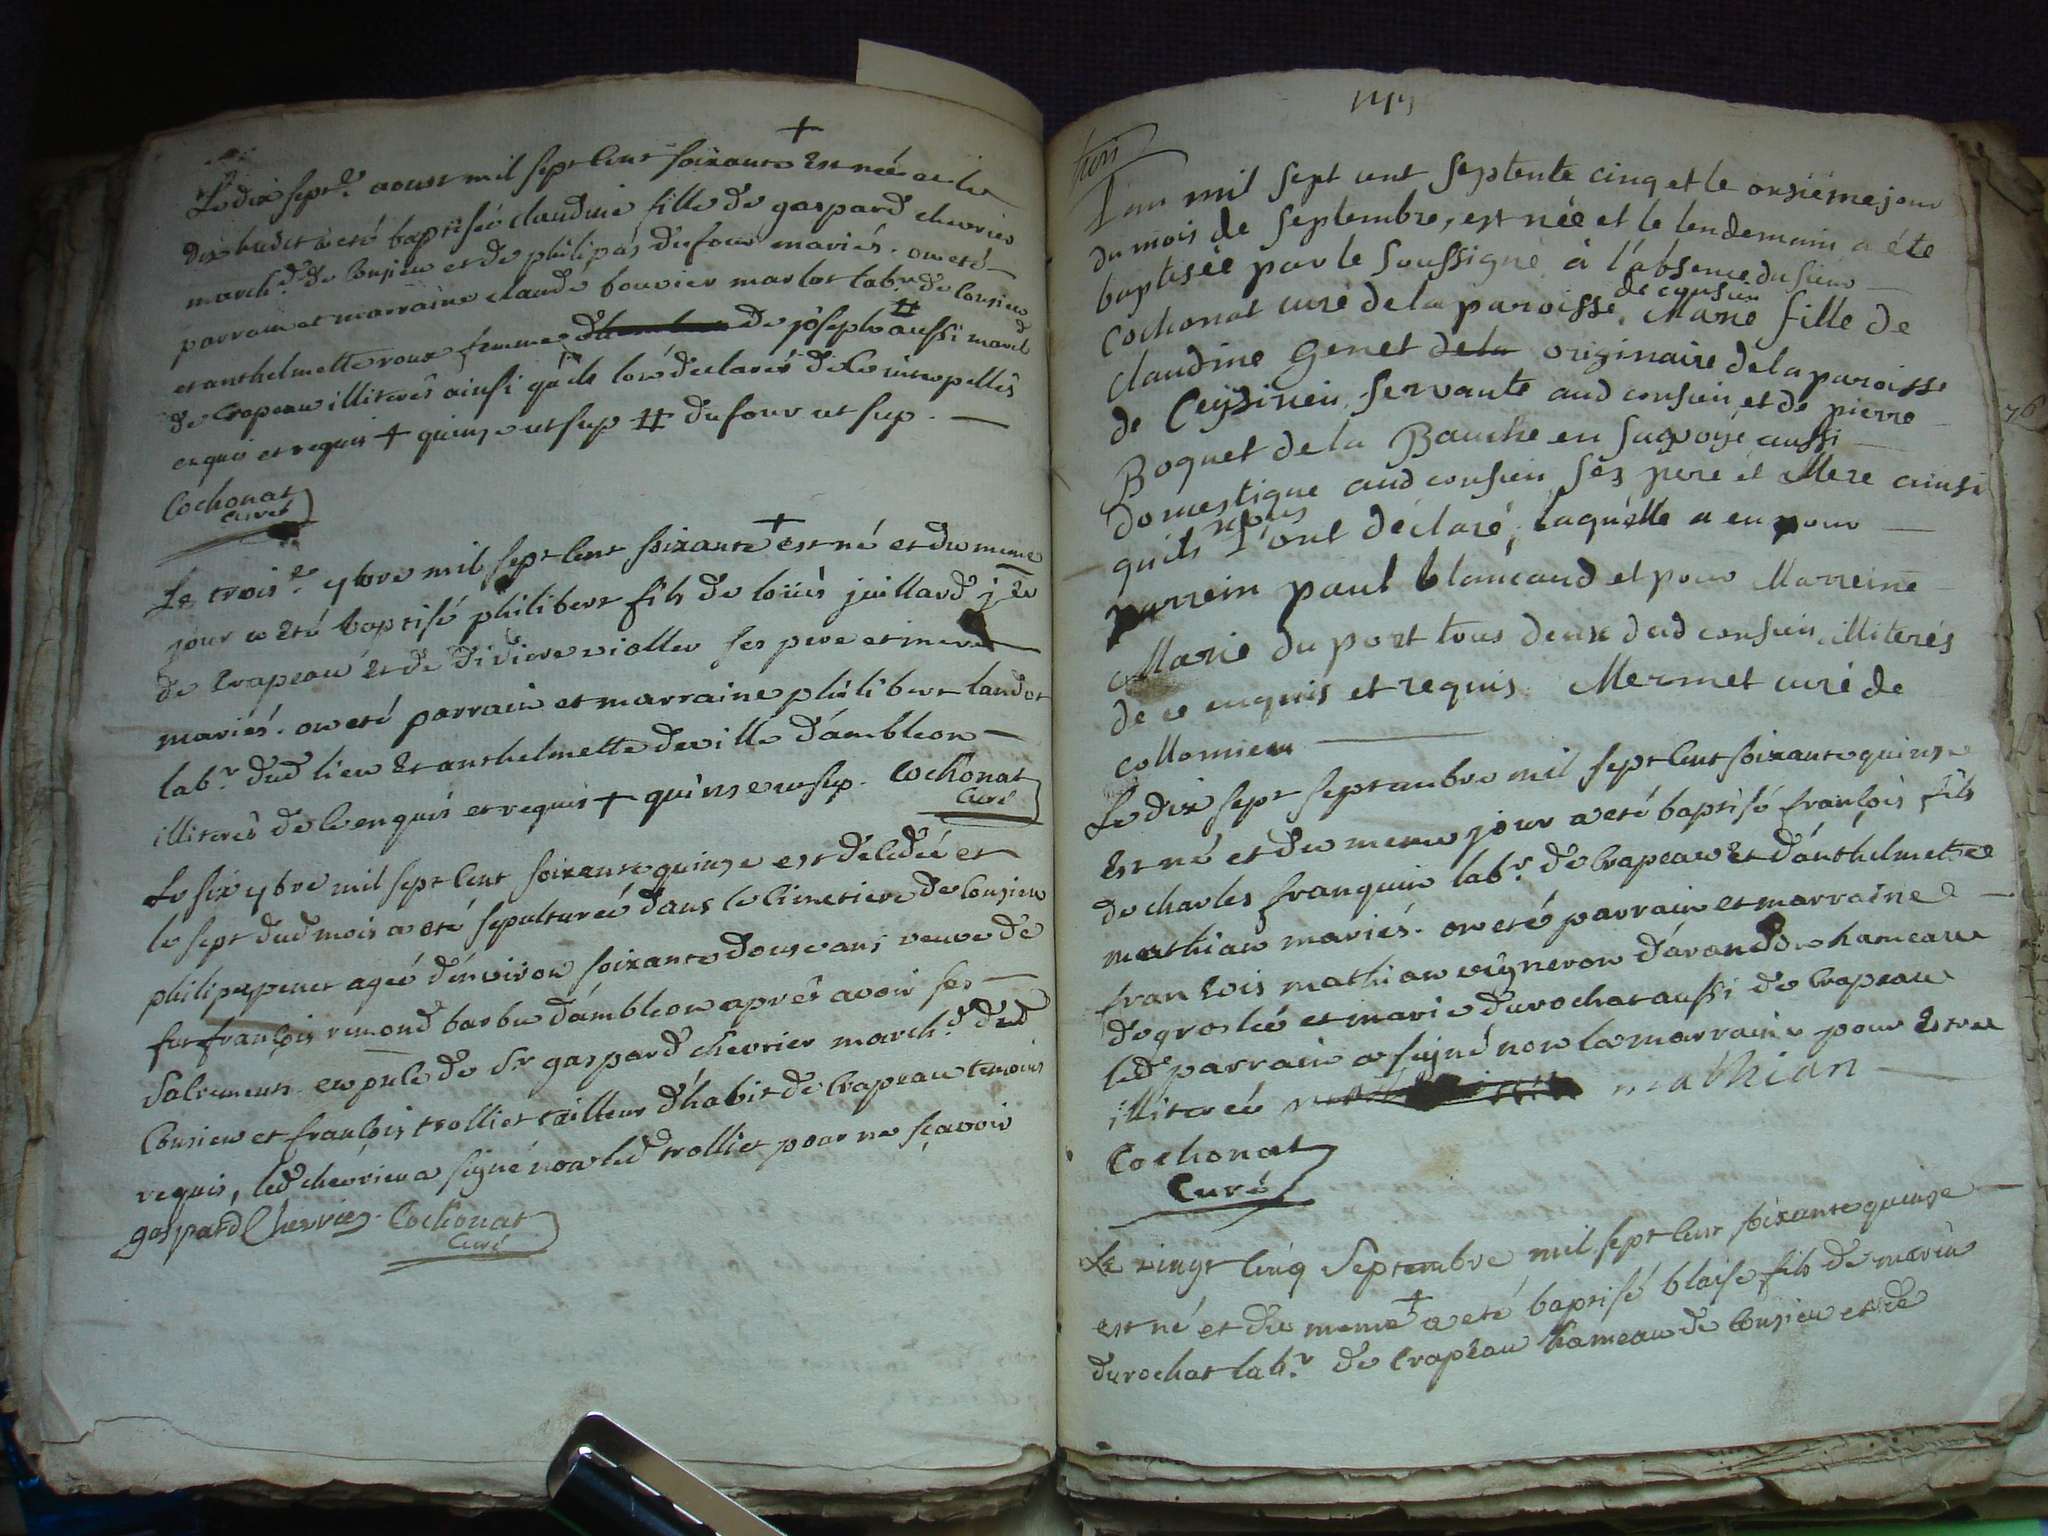 Le dix sept.e aoust mil sept cent soixante + est née et le
dix huict a eté baptisée claudine fille de gaspard chevrier
march.d de Consieu et de philipas dufour mariés. ont eté
parrain et marraine claude bouvier marlot lab.r de Consieu
et anthelmette roux femme de joseph # aussi march.d
de Crapeau illiterés ainsi qu'ils l'on déclarés de ce interpellés
enquis et requis + quinze ut sup # dufour ut sup.
Cochonat
curé
Le trois.e 7bre mil sept cent soixante + est né et du meme
jour a eté baptisé philibert fils de loüis juillard
de Crapeau et de violler ses pere et mere
mariés. ont eté parrain et marraine philibert landot
lab.r dud lieu et anthelmette deville d'ambleon
illiterés de ce enquis et requis + quinze ut sup. Cochonat
Curé
Le six 7bre mil sept cent soixante quinze est decedée et
le sept dud mois a eté sepulturée dans le cimetiere de Consieu
philip penet ageé d'environ soixante douze ans veuve de
fut françois remond barbu d'ambleon après avoir ses
Sacrements en pnce de Sr gaspard chevrier march.d dud
Consieu et françois trolliet tailleur d'habit de Crapeau temoins
requis, led chevrier a signé non led trolliet pour ne sçavoir
gaspard Chevrier. Cochonat
Curé
L'an mil sept cent septente cinq et le onsiéme jour
du mois de Septembre, est née et le lendemain a été
baptisée par le soussigné à l'absence du sieur
Cochonat curé de la paroisse de consieu Marie fille de
claudine Genet de la originaire de la paroisse
de Ceyzirieu servante aud consieu, et de pierre
Boquet de la Bauche en savoye aussi
domestique aud consieu ses pere et Mere ainsi
quils nous l'ont déclaré, laquelle a eu pour
parrein paul blancard et pour Marreine
Marie du port tous deux dud consieu illiterés
de ce enquis et requis. Mermet curé de
collomieu
Le dix sept septambre mil sept cent soixante quinze
est né et du meme jour a eté baptisé françois fils
de charles franquin lab.r de Crapeau et d'anthelmette
mathian mariés. ont eté parrain et marraine
francois mathian vigneron d'avandon hameau
de groslée et marie durochat aussi de Crapeau
led parrain a signé non la marraine pour estre
illiterée mathian
Cochonat
Curé
Le vingt cinq Septembre mil sept cent soixante quinze
est né et du meme + a eté baptisé blaise fils de marin
durochat lab.r de Crapeau hameau de Consieu et de
76